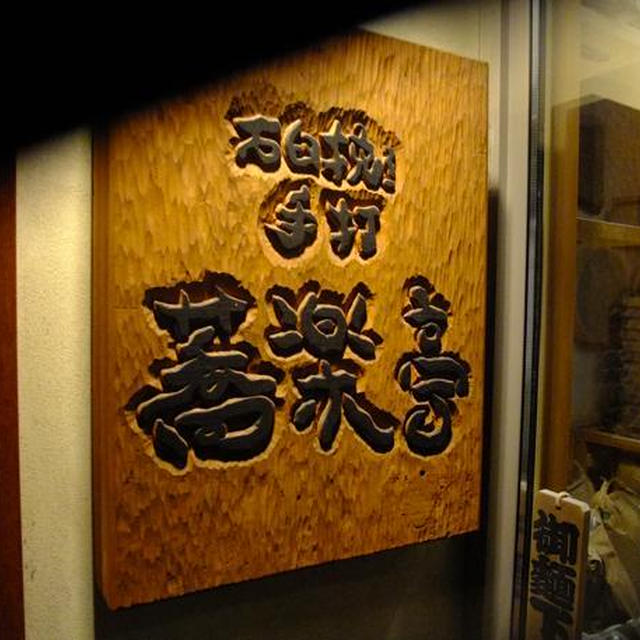 石臼挽き
手打
蕎楽亭
御麺